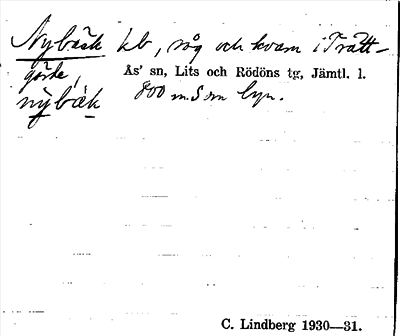 Nybäck kb, såg och kvarn i Tratt-
gärde,
Ås' sn, Lits och Rödöns tg, Jämtl. l.
nỳbàk 800 m S om byn.
C. Lindberg 1930—31.